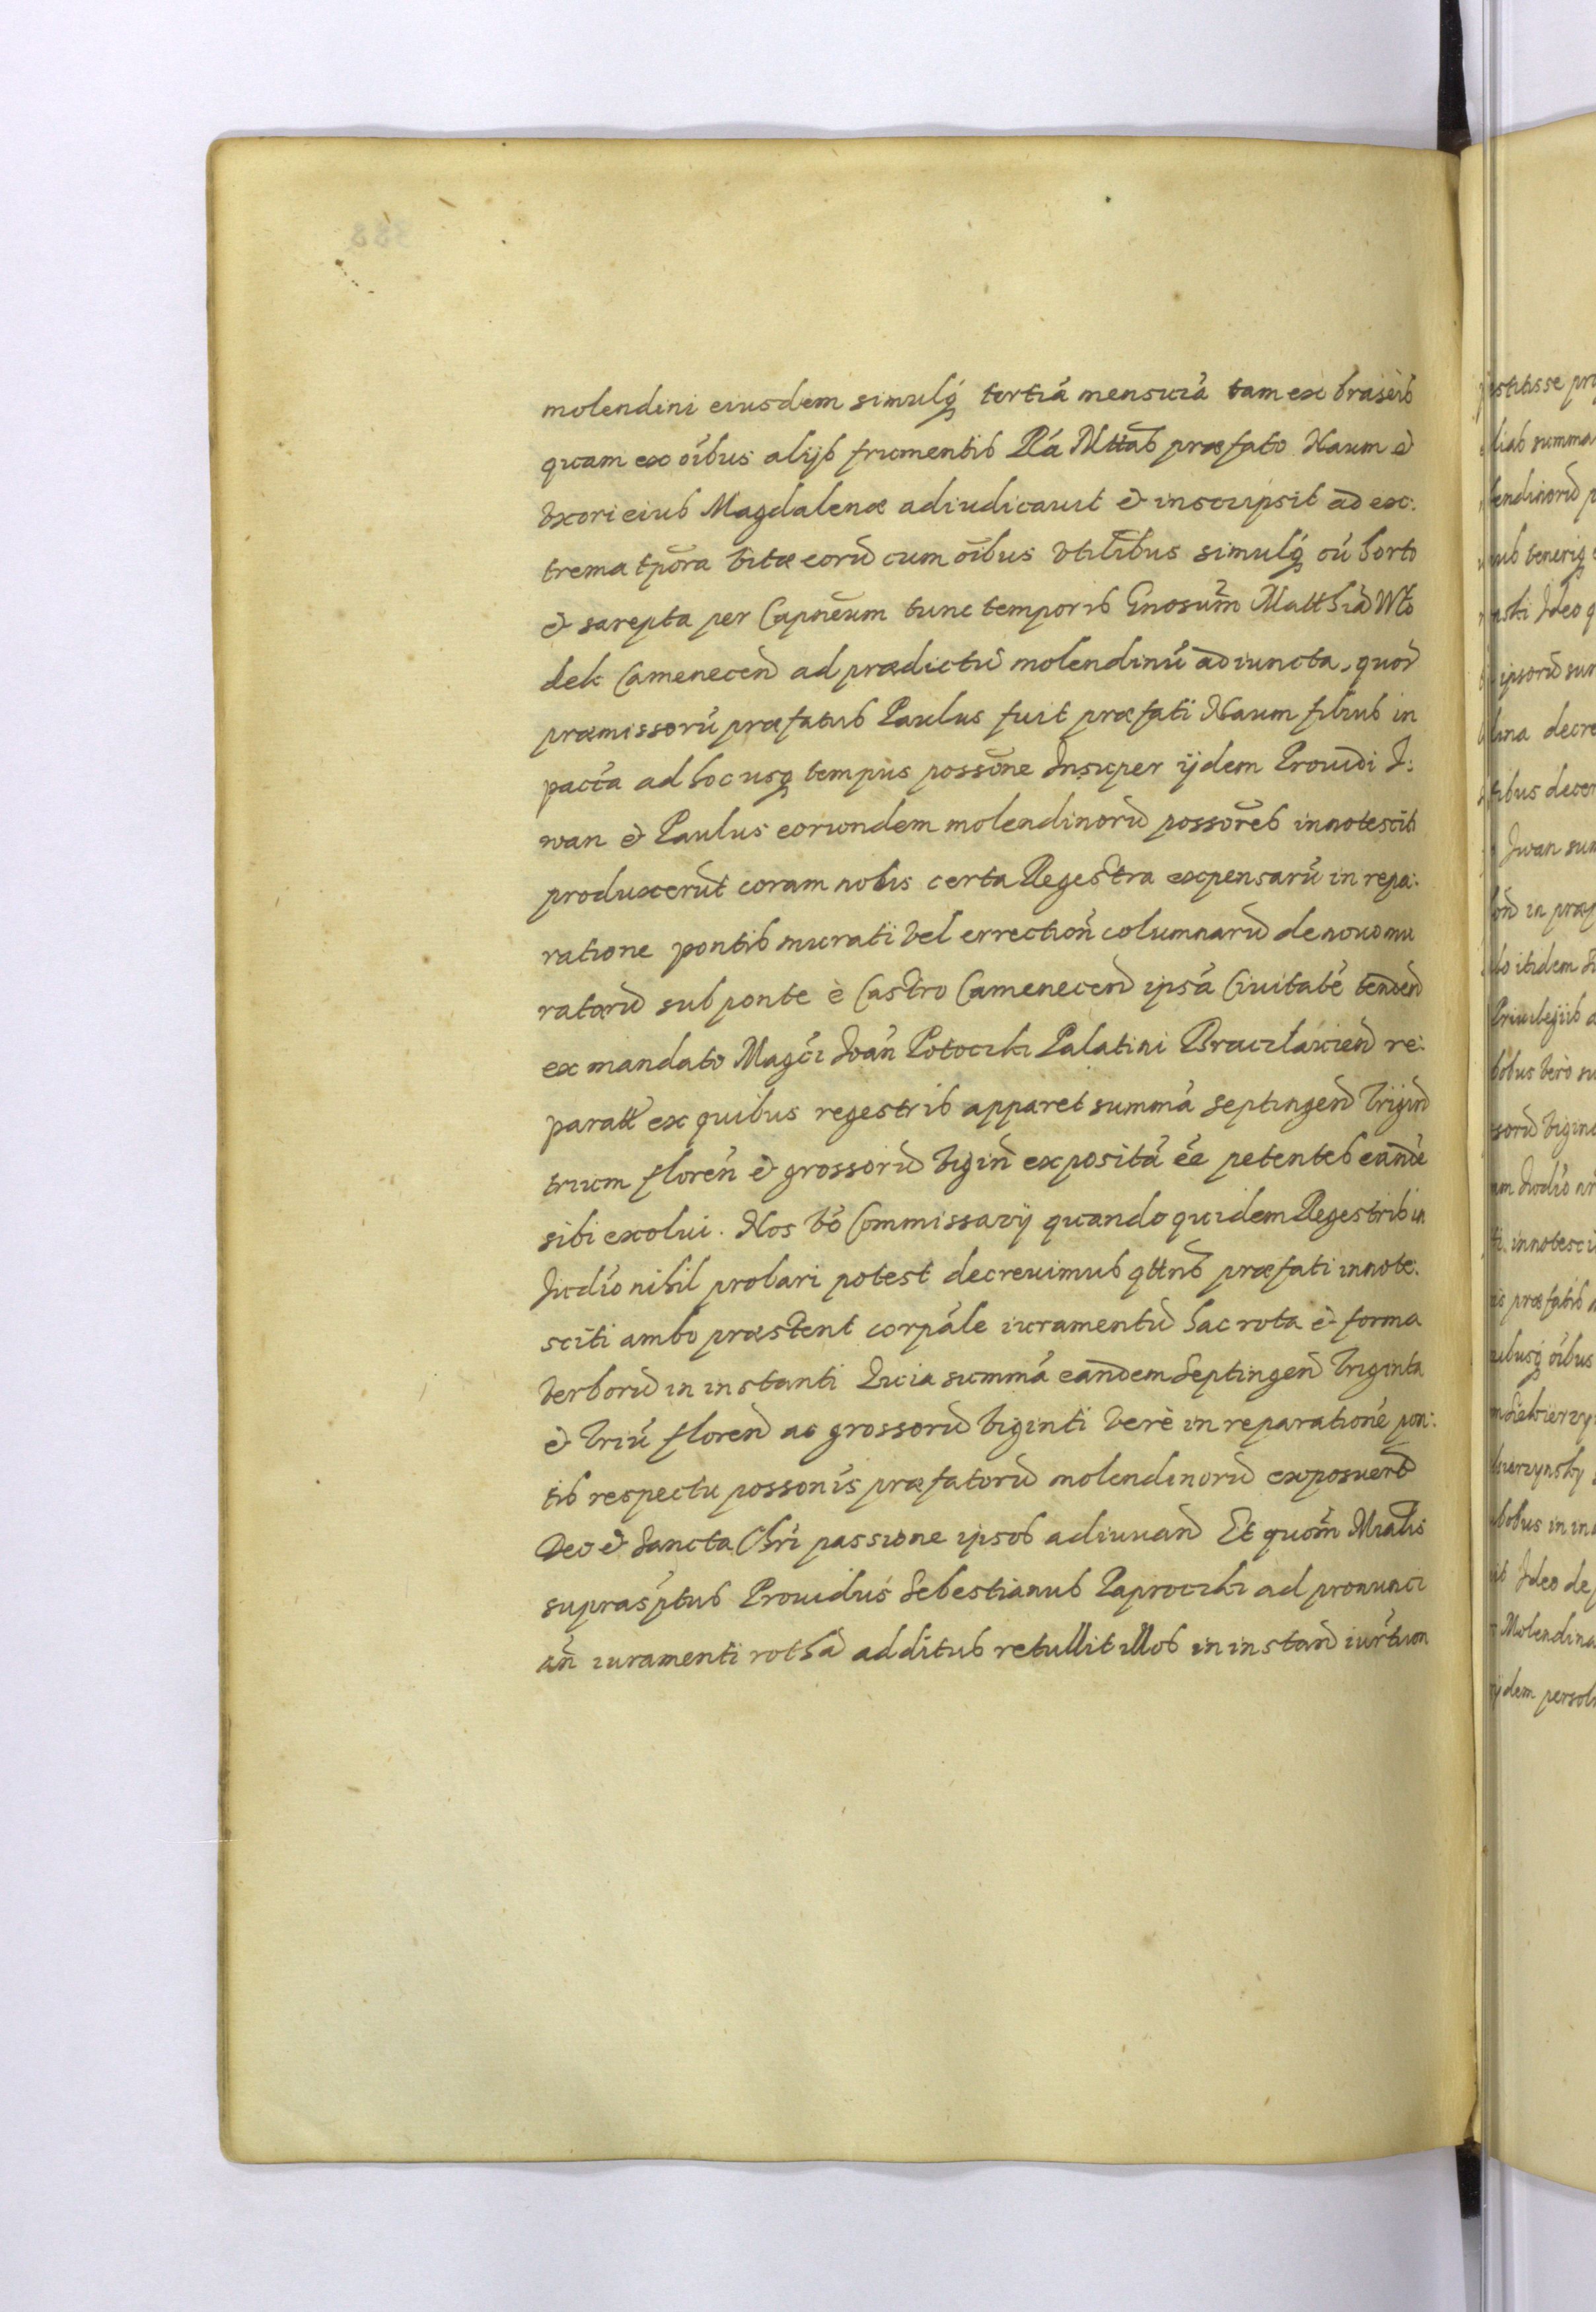 molendini eiusdem simulq́ tertiá mensurá tam ex braseis
quam ex oĩbus alijs frumentis Rá Mttas præfato Naum &
vxori eius Magdalenæ adiudicauit & inscripsit ad ex:
trema tpõra vitæ eorũ cum oĩbus vtilibus simulq́ cũ horto
& sarepta per Capneum tunc temporis Gnosum̃ Matthiã Wło
dek Camenecen̄ ad prædictũ molendinũ adiuncta, quor̄
præmissorũ præfatus Paulus fuit præfati Naum filius in
paccá ad hoc usq tempus possõne Insuper ijdem Prouidi I:
wan & Paulus eorundem molendinorũ possores innotescit
produxerũt coram nobis certa Regestra expensarũ in repa:
ratione pontis murati vel errection̄ columnarũ de nouo mu
ratorũ sub ponte è Castro Camenecen̄ ipsá Ciuitaté tendeñ
ex mandato Magći Joań Potoczki Palatini Braczlauień re:
paratt ex quibus regestris apparet summá septingen̄ trigin̄
trium floreń & grossorũ vigin̄ expositá éé petentes eandé
sibi exolui. Nos vó Commissarij quando quidem Regestris in
Judío nihil probari potest decreuimus qttns præfati innote:
sciti ambo præstent corpále iuramentũ hac rota & forma
verborũ in instanti Quia summá eandem septingen̄ triginta
& triũ floren̄ ac grossorũ viginti verè in reparationé pon:
tis respectu possonis præfatorũ molendinorũ exposuer̃t
Deo & Sancta Chrí passione ipsos adiuuan̄ Et quom̃ Mialis
suprasptus Prouidus Sebestianus Paproczki ad pronunci
ań iuramenti rothã additus retullit illos in instan̄ iurtum